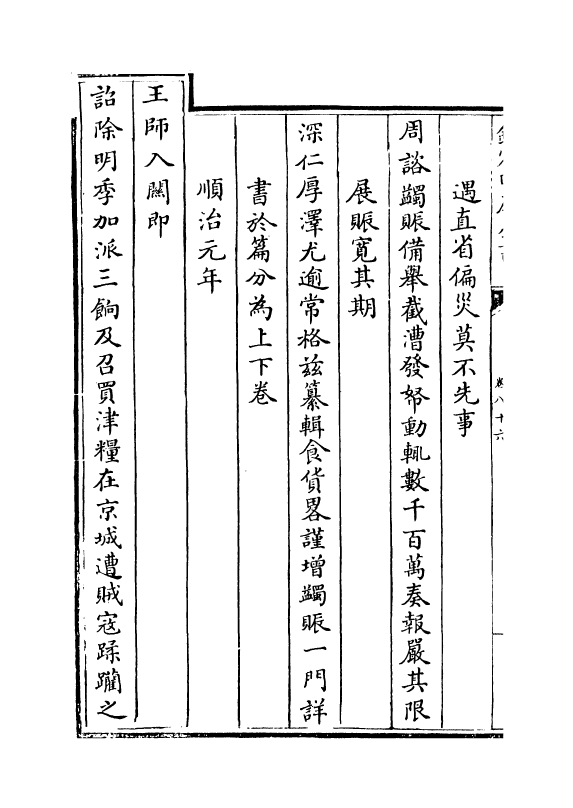 遇直省偏災莫不先事
周諮蠲賑備舉截漕發帑動輒數千百萬奏報嚴其限
展賑寬其期
深仁厚澤尤逾常格兹纂輯食貨畧謹增蠲賑一門詳
書於篇分為上下卷
順治元年
王師入關即
詔除明季加派三餉及召買津糧在京城遭賊寇蹂躪之
卷八十六